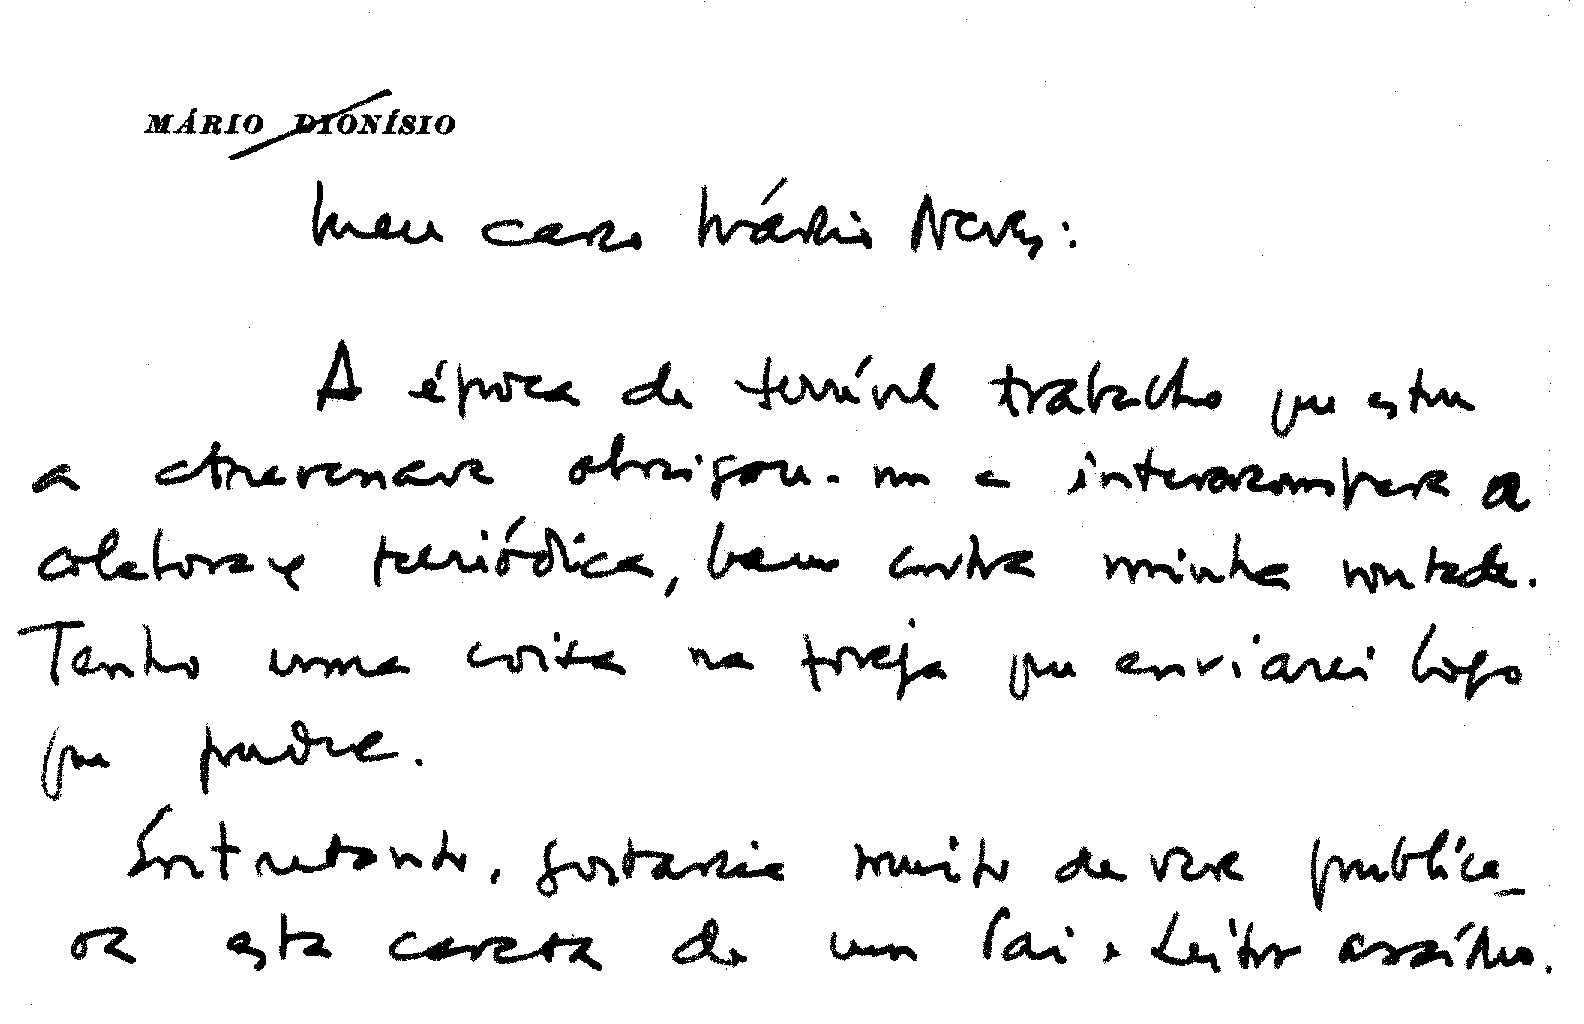 MÁRIO DIONÍSIO
Meu caro Mário Neves:
A época de terrível trabalho que estou
a atravessar obrigou-me a interromper a
colaboração periódica, bem contra minha vontade.
Tenho uma coisa na forja que enviarei logo
que puder.
Entretanto, gostaria muito de ver publica-
da esta carta de um Pai e Leitor assíduo.